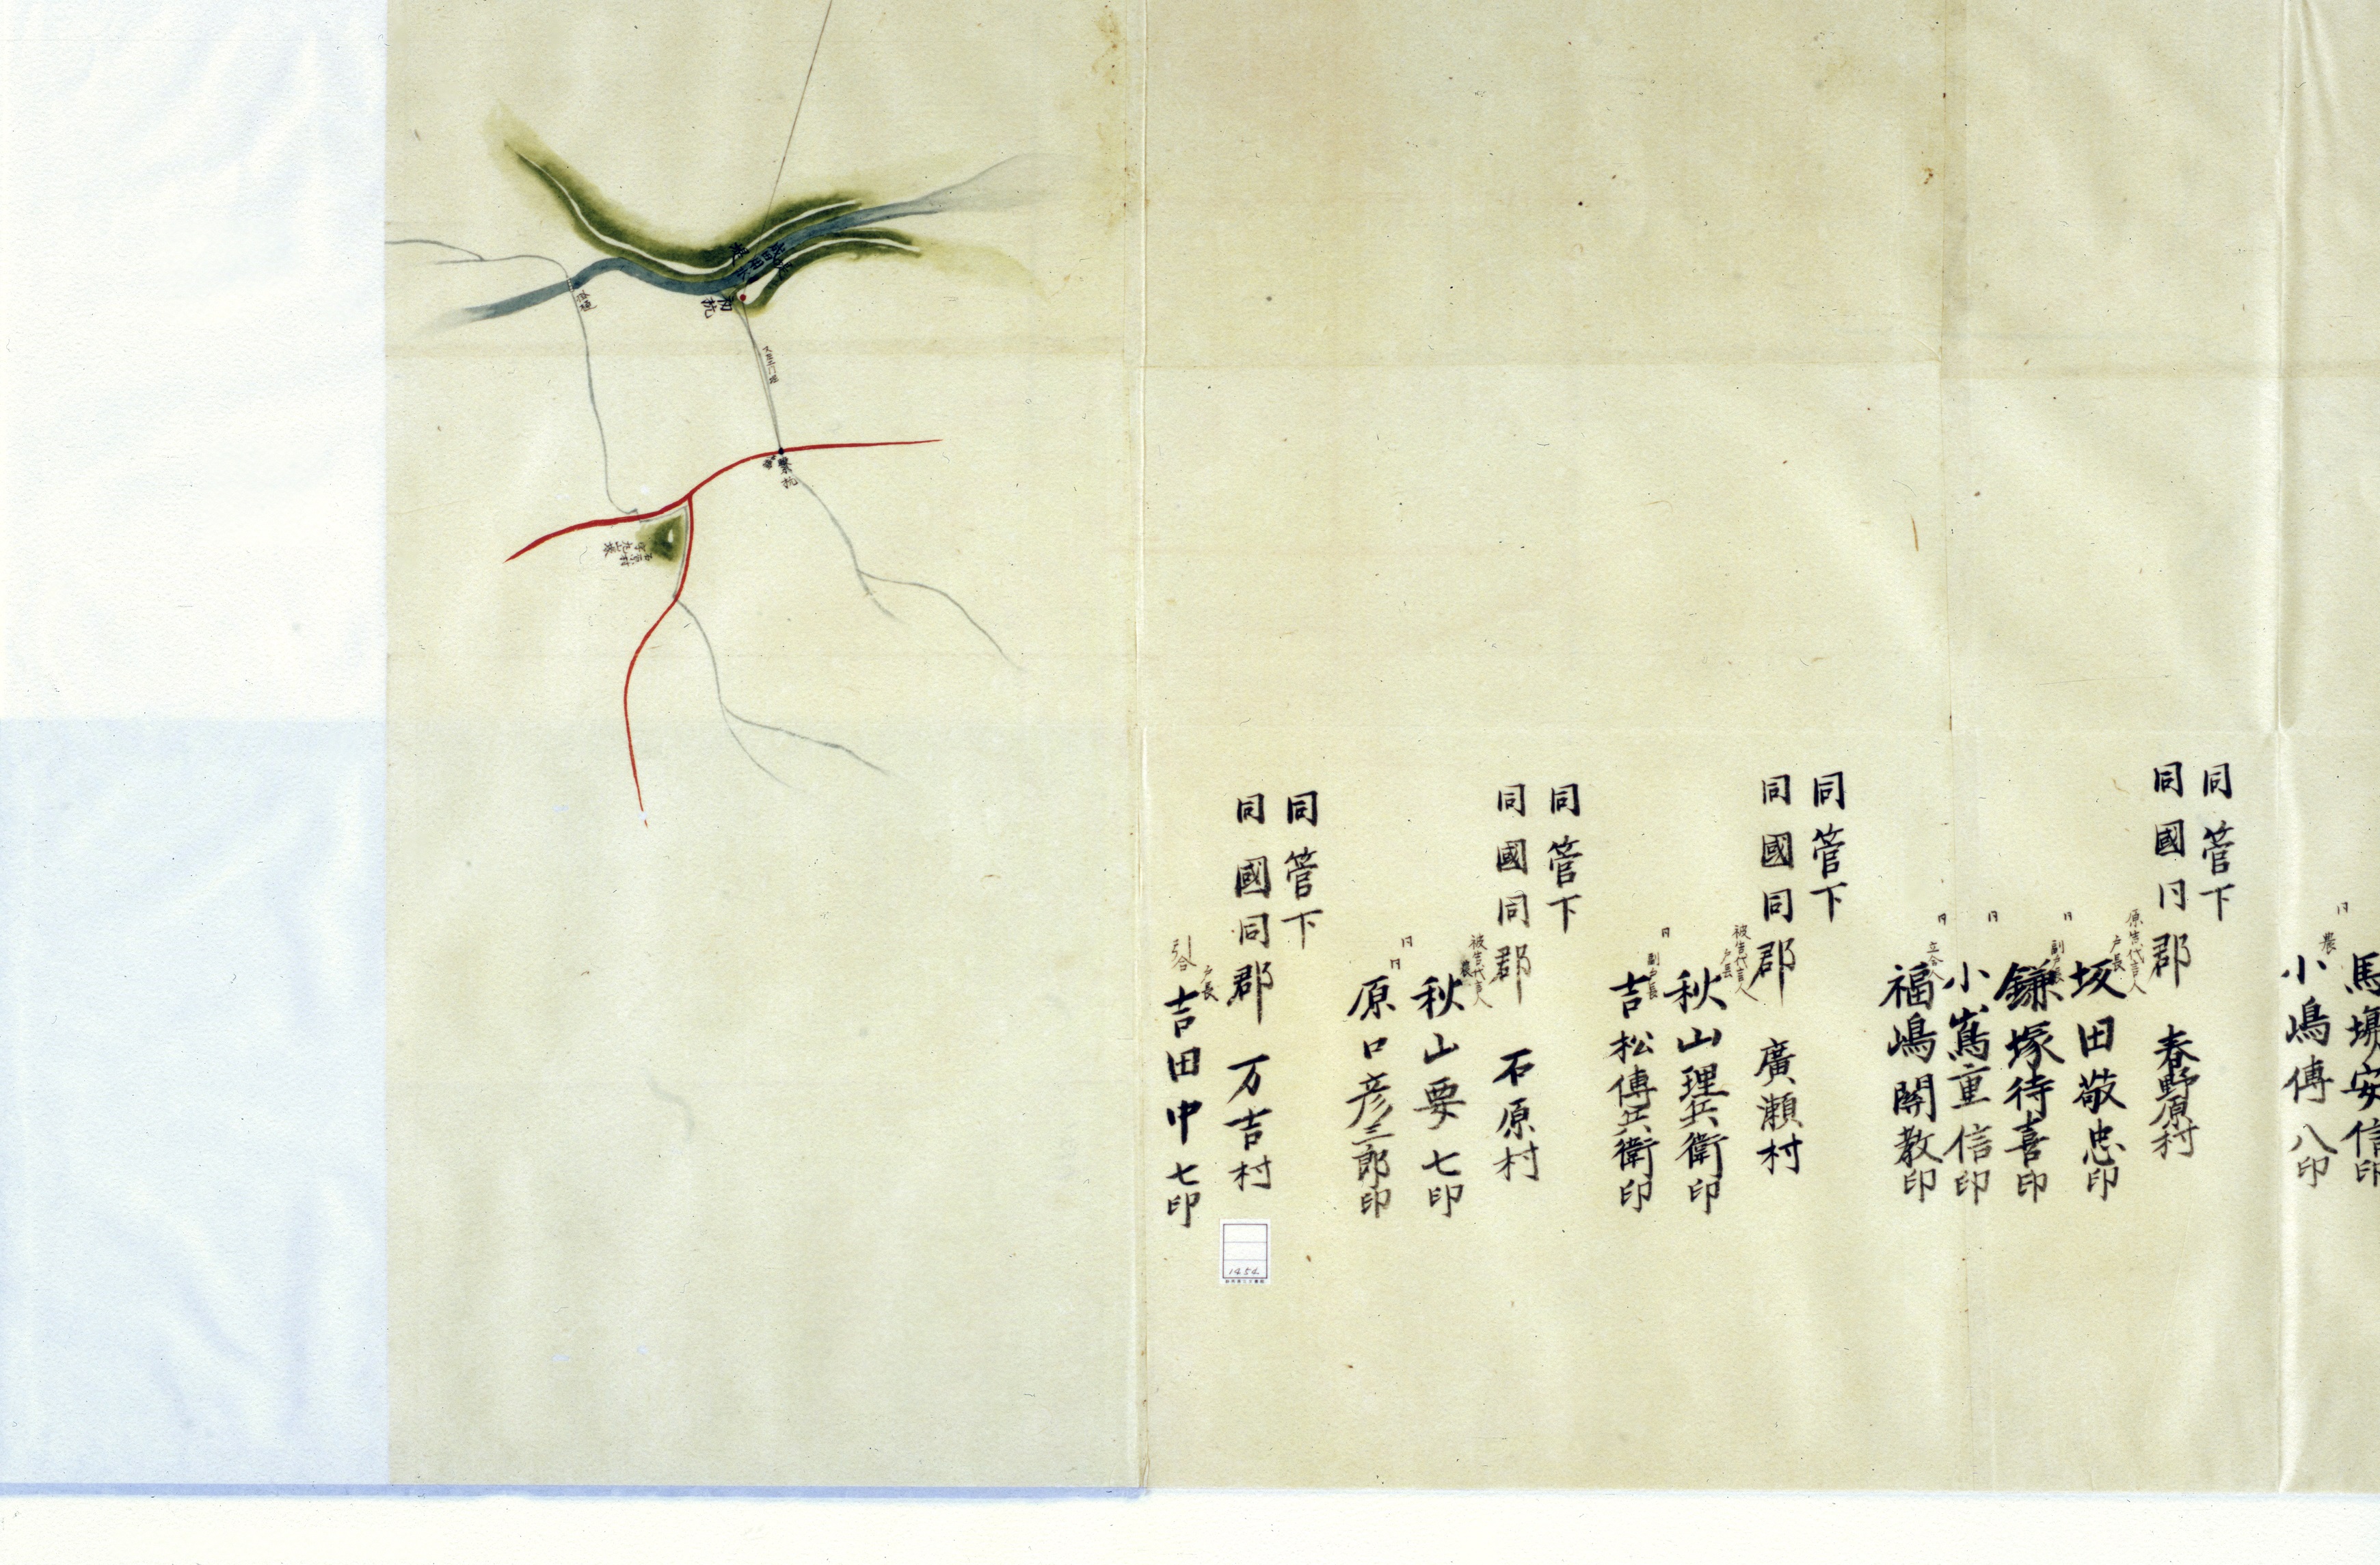 馬場安信印
同
農
小嶋傳八印
同管下
同國同郡 春野原村
原告代言人
戸長
坂田敬忠印
同
副戸長
鎌塚待喜印
同
小嶌重信印
同
立会人
福嶋関教印
同管下
同國同郡 廣瀬村
被告代言人
戸長
秋山理兵衛印
同
副戸長
吉松傳兵衛印
同管下
同國同郡 石原村
被告代言人
農
秋山要七印
同
同
原口彦三郎印
同管下
同國同郡 万吉村
戸長
引合
吉田中七印
初杭
1454